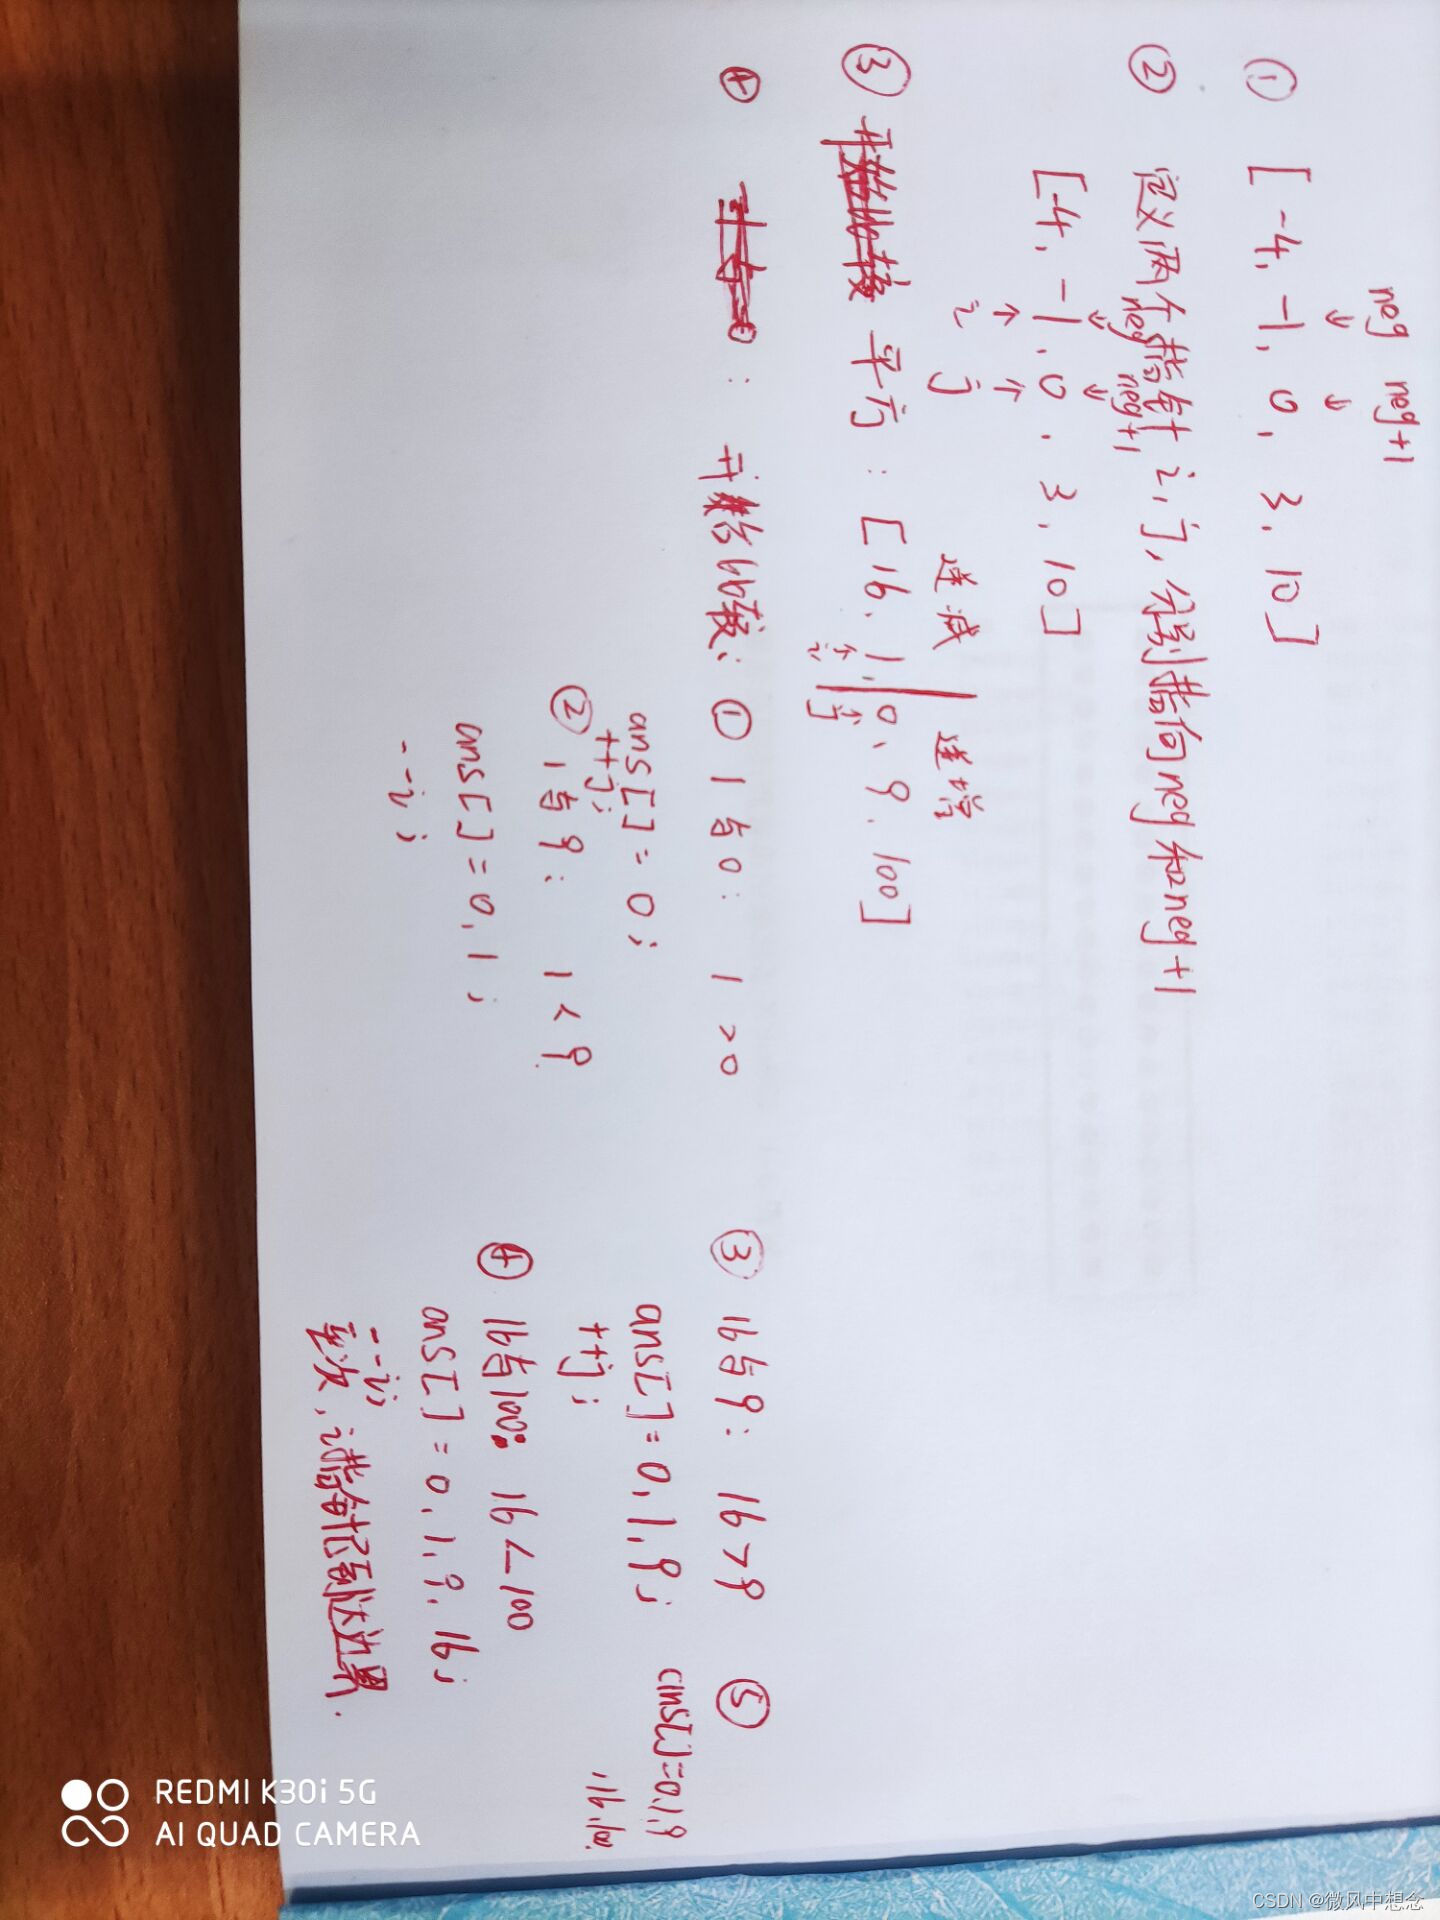 neg neg+1
↓ ↓
① [-4, -1, 0, 3, 10]
② 定义两个指针 i, j, 分别指向neg和neg+1
neg neg+1
↓ ↓
[-4, -1, 0, 3, 10]
↑ ↑
i j
递减 递增
③ 平方: [16, 1, 0, 9, 100]
↑ ↑
i j
④ : 开始比较: ① 1与0: 1 > 0
ans[] = 0;
++j;
② 1与9: 1 < 9
ans[] = 0, 1;
--i;
③ 16与9: 16 > 9
ans[] = 0, 1, 9;
++j;
④ 16与100: 16 < 100
ans[] = 0, 1, 9, 16;
--i;
至次, i指针已到达边界.
⑤
ans[]=0,1,9
,16,100
REDMI K30i 5G
AI QUAD CAMERA
CSDN @微风中想念